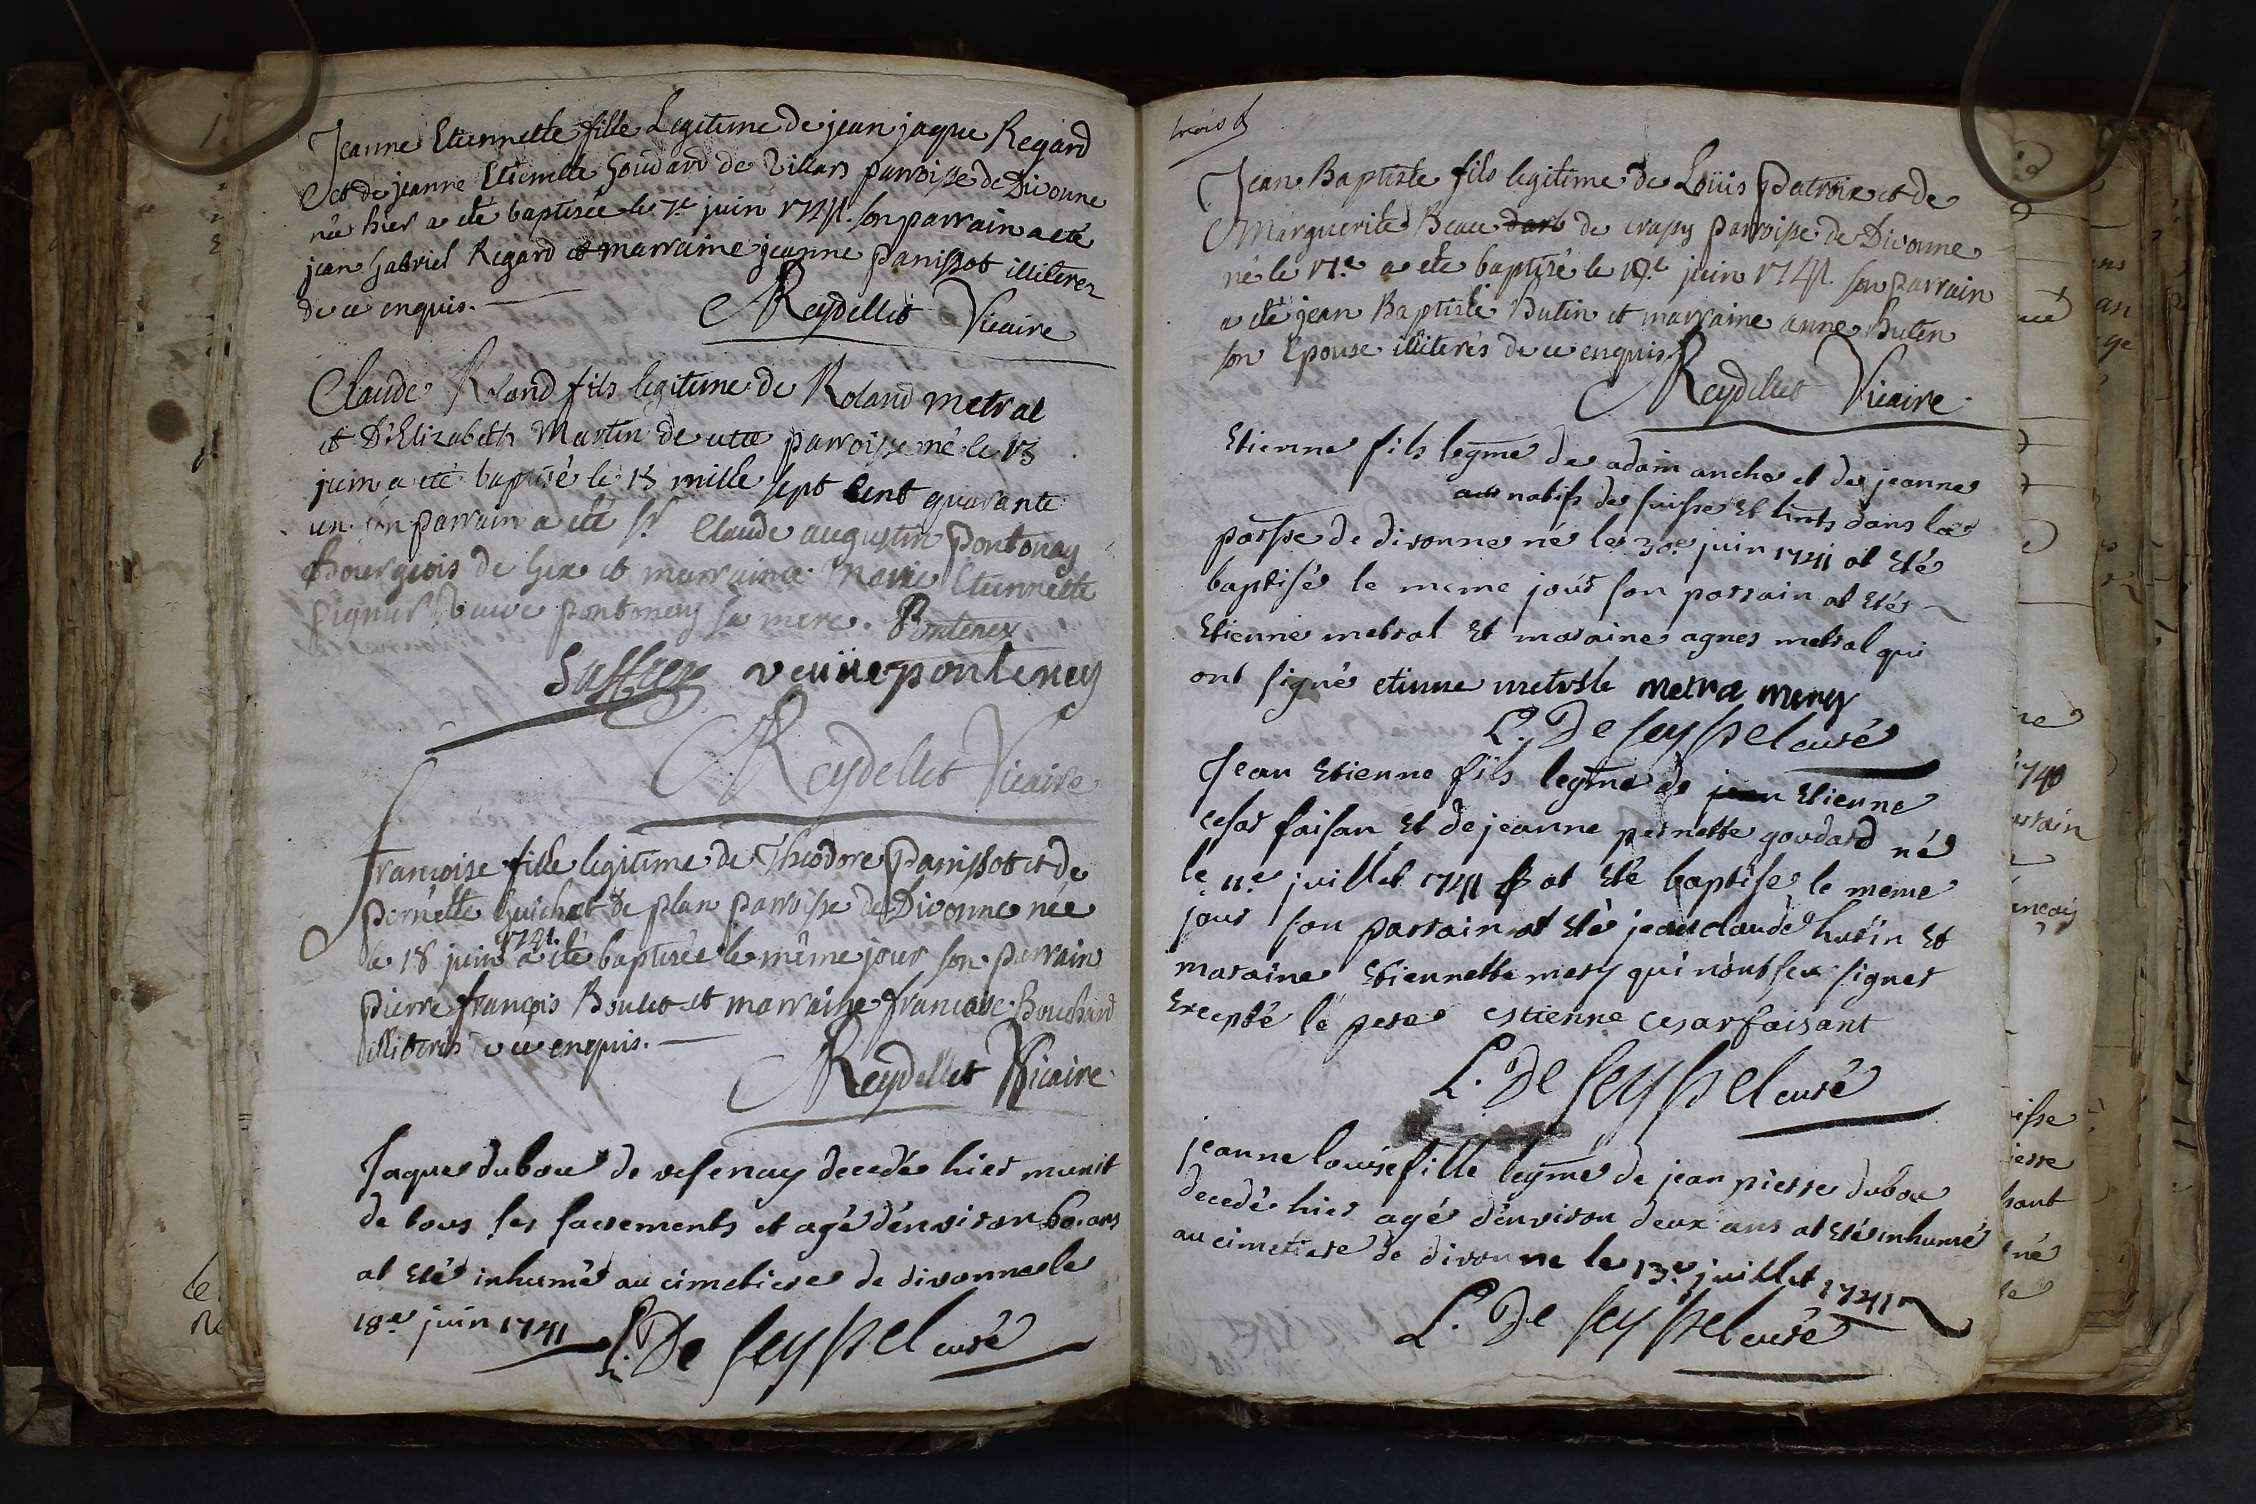 Jeanne Etiennette fille Legitime de jean jaque Regard
et de jeanne Etiennette Goudard de Villars parroisse de Divonne
née hier a eté baptisée le 7e juin 1741. son parrain a eté
jean Gabriel Regard et marraine jeanne panissot illiterez
de ce enquis.
Reydellet Vicaire
Claude Roland fils legitime de Roland metral
et D'Elizabeth Martin de cette parroisse né le 13
juin a eté baptisé le 15 mille sept cent quarante
un. son parrain a eté Sr. Claude augustin pontenay
Bourgeois de Gex et marraine Marie Etiennette
veuve ponteney sa mere. Pontenex
veuüe ponteney
Reydellet Vicaire
françoise fille legitime de Theodore Panissot et de
pernette Guichet de plan parroisse de Divonne née
le 18 juin 1741. a eté baptisée le même jour son parrain
pierre françois Boulet et marraine francoise Bouchard
illiterés de ce enquis.
Reydellet Vicaire
Jaques dubou de vesenay decedé hier munit
de tous les sacrements et agé d'environ 60. ans
at eté inhumé au cimetiere de divonne le
18e juin 1741 L. De seyssel curé
trois
Jean Baptiste fils legitime de Loüis Patroix et de
Marguerite Beau de crassy parroisse de Divonne
né le 17e a eté baptisé le 18e juin 1741. son parrain
a eté jean Baptiste Hutin et marraine anne Hutin
son Epouse illiterés de ce enquis
Reydellet Vicaire.
Etienne fils legme de adam anche et de jeanne
natifs de suisse et hnts dans la
parsse de divonne né le 30e juin 1741 at eté
baptisé le meme jour son parrain at eté
Etienne metral et maraine agnes metral qui
ont signé etienne metrale metra mery
L. De seyssel curé
Jean Etienne fils legme de jean Etienne
cesar faisan et de jeanne pernette goudard né
le 11e juillet 1741 at eté baptisé le meme
jour son parrain at eté jean claude hutin et
maraine Etiennette mery qui n'ont sçu signer
Excepté le pere estienne cesar faisant
L. De seyssel curé
jeanne louise fille legme de jean pierre dubou
decedé hier agé d'environ deux ans at eté inhumé
au cimetiere de divonne le 13e juillet 1741
L. De seyssel curé